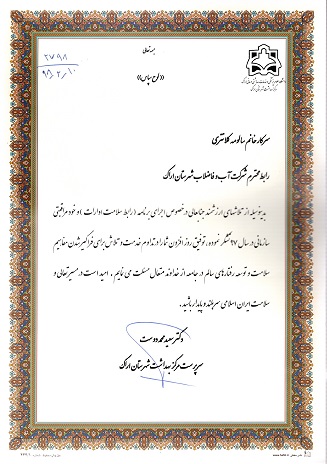 بسمه تعالی
۲۷۹۸
۹۸/۲/۱۰
«لوح سپاس»
سرکار خانم سالومه کلانتری
رابط محترم شرکت آب و فاضلاب شهرستان اراک
بدینوسیله از تلاشهای ارزشمند جنابعالی در خصوص اجرای برنامه (رابط سلامت ادارات) و خود مراقبتی
سازمانی در سال ۹۷ تشکر نموده، توفیق روز افزون شما را در تداوم خدمت و تلاش برای فراگیر شدن مفاهیم
سلامت و توسعه رفتارهای سالم در جامعه از خداوند متعال مسئلت می نمایم، امید است در مسیر تعالی و
سلامت ایران اسلامی سربلند و پایدار باشید.
دکتر سعید محمد دوست
سرپرست مرکز بهداشت شهرستان اراک